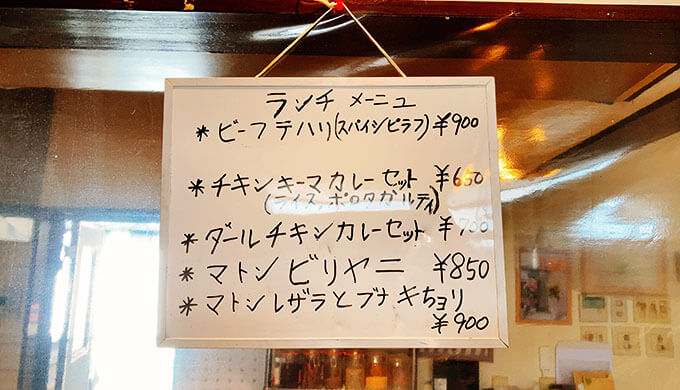 ランチ メーニュ
* ビーフテハリ(スパイシピラフ) ¥900
* チキンキーマカレーセット ¥650
(ライス,ポロタガルティ)
* ダールチキンカレーセット ¥700
* マトンビリヤニ ¥850
* マトンレザラとブナキちョリ
¥900